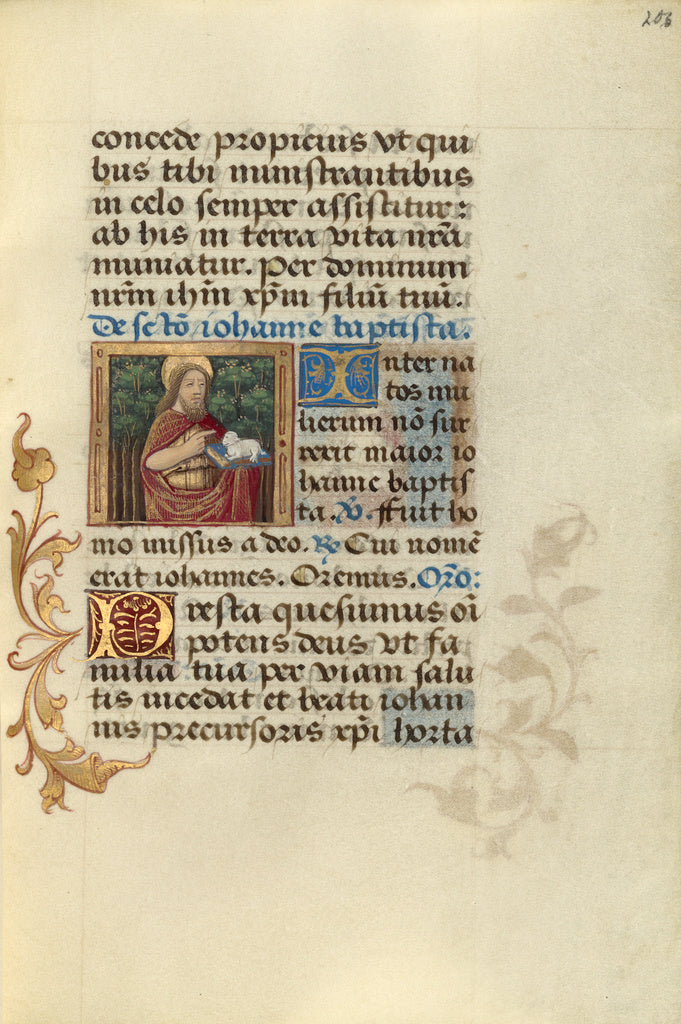 206
concede propicius vt qui
bus tibi ministrantibus
in celo semper assistitur:
ab his in terra vita nr̄a
muniatur. Per dominum
nr̄m ih̄m xp̄m filiū tuū.
De sc̄to iohanne baptista.
Inter na
tos mu
lierum nō sur
rexit maior io
hanne baptis
ta. V̷. ffuit ho
mo missus a deo. R̷ Cui nomē
erat iohannes. Oremus. Or̄o:
Presta quesumus oī
potens deus vt fa
milia tua per viam salu
tis incedat et beati iohan
nis precursoris xp̄i horta